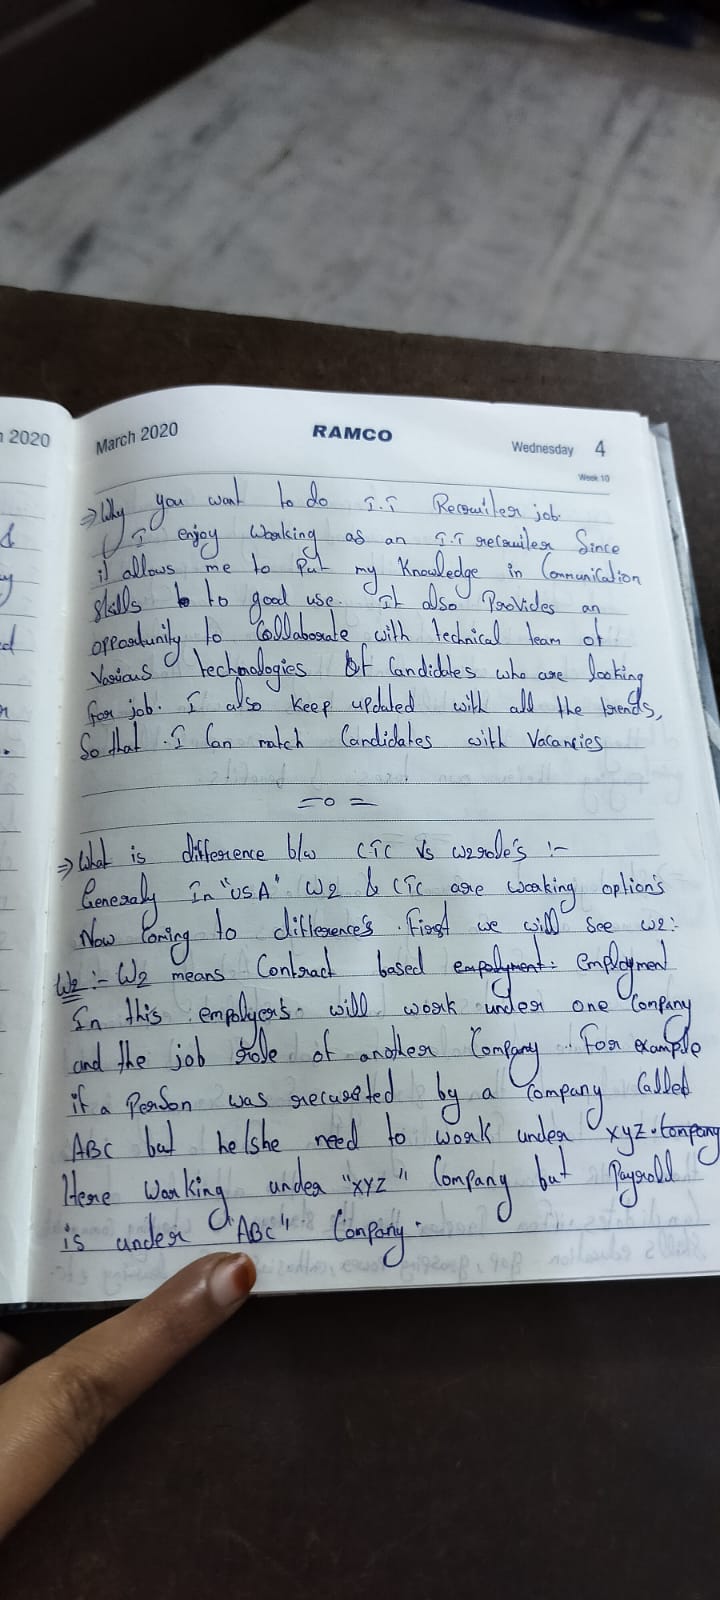 n 2020
March 2020
RAMCO
Wednesday 4
Week 10
⇒ Why you want to do I.T Recruiter job.
I enjoy working as an I.T recruiter Since
it allows me to put my Knowledge in Communication
skills to to good use. It also Provides an
opportunity to Collaborate with technical team of
Various technologies Of Candidates who are looking
for job. I also keep updated with all the trends,
So that I Can match Candidates with Vacancies
=o=
⇒ What is difference b/w CTC Vs W2 role's :-
Generaly In "USA" W2 & CTC are working option's
Now Coming to difference's. First we will see W2:-
W2 :- W2 means Contract based empolyment: employment
In this empolyers will work under one Company
and the job role of another Company. For example
if a Person was recurited by a Company Called
ABC but he/she need to work under XYZ Company
Here Working under "XYZ" Company but Payroll
is under "ABC" Company.